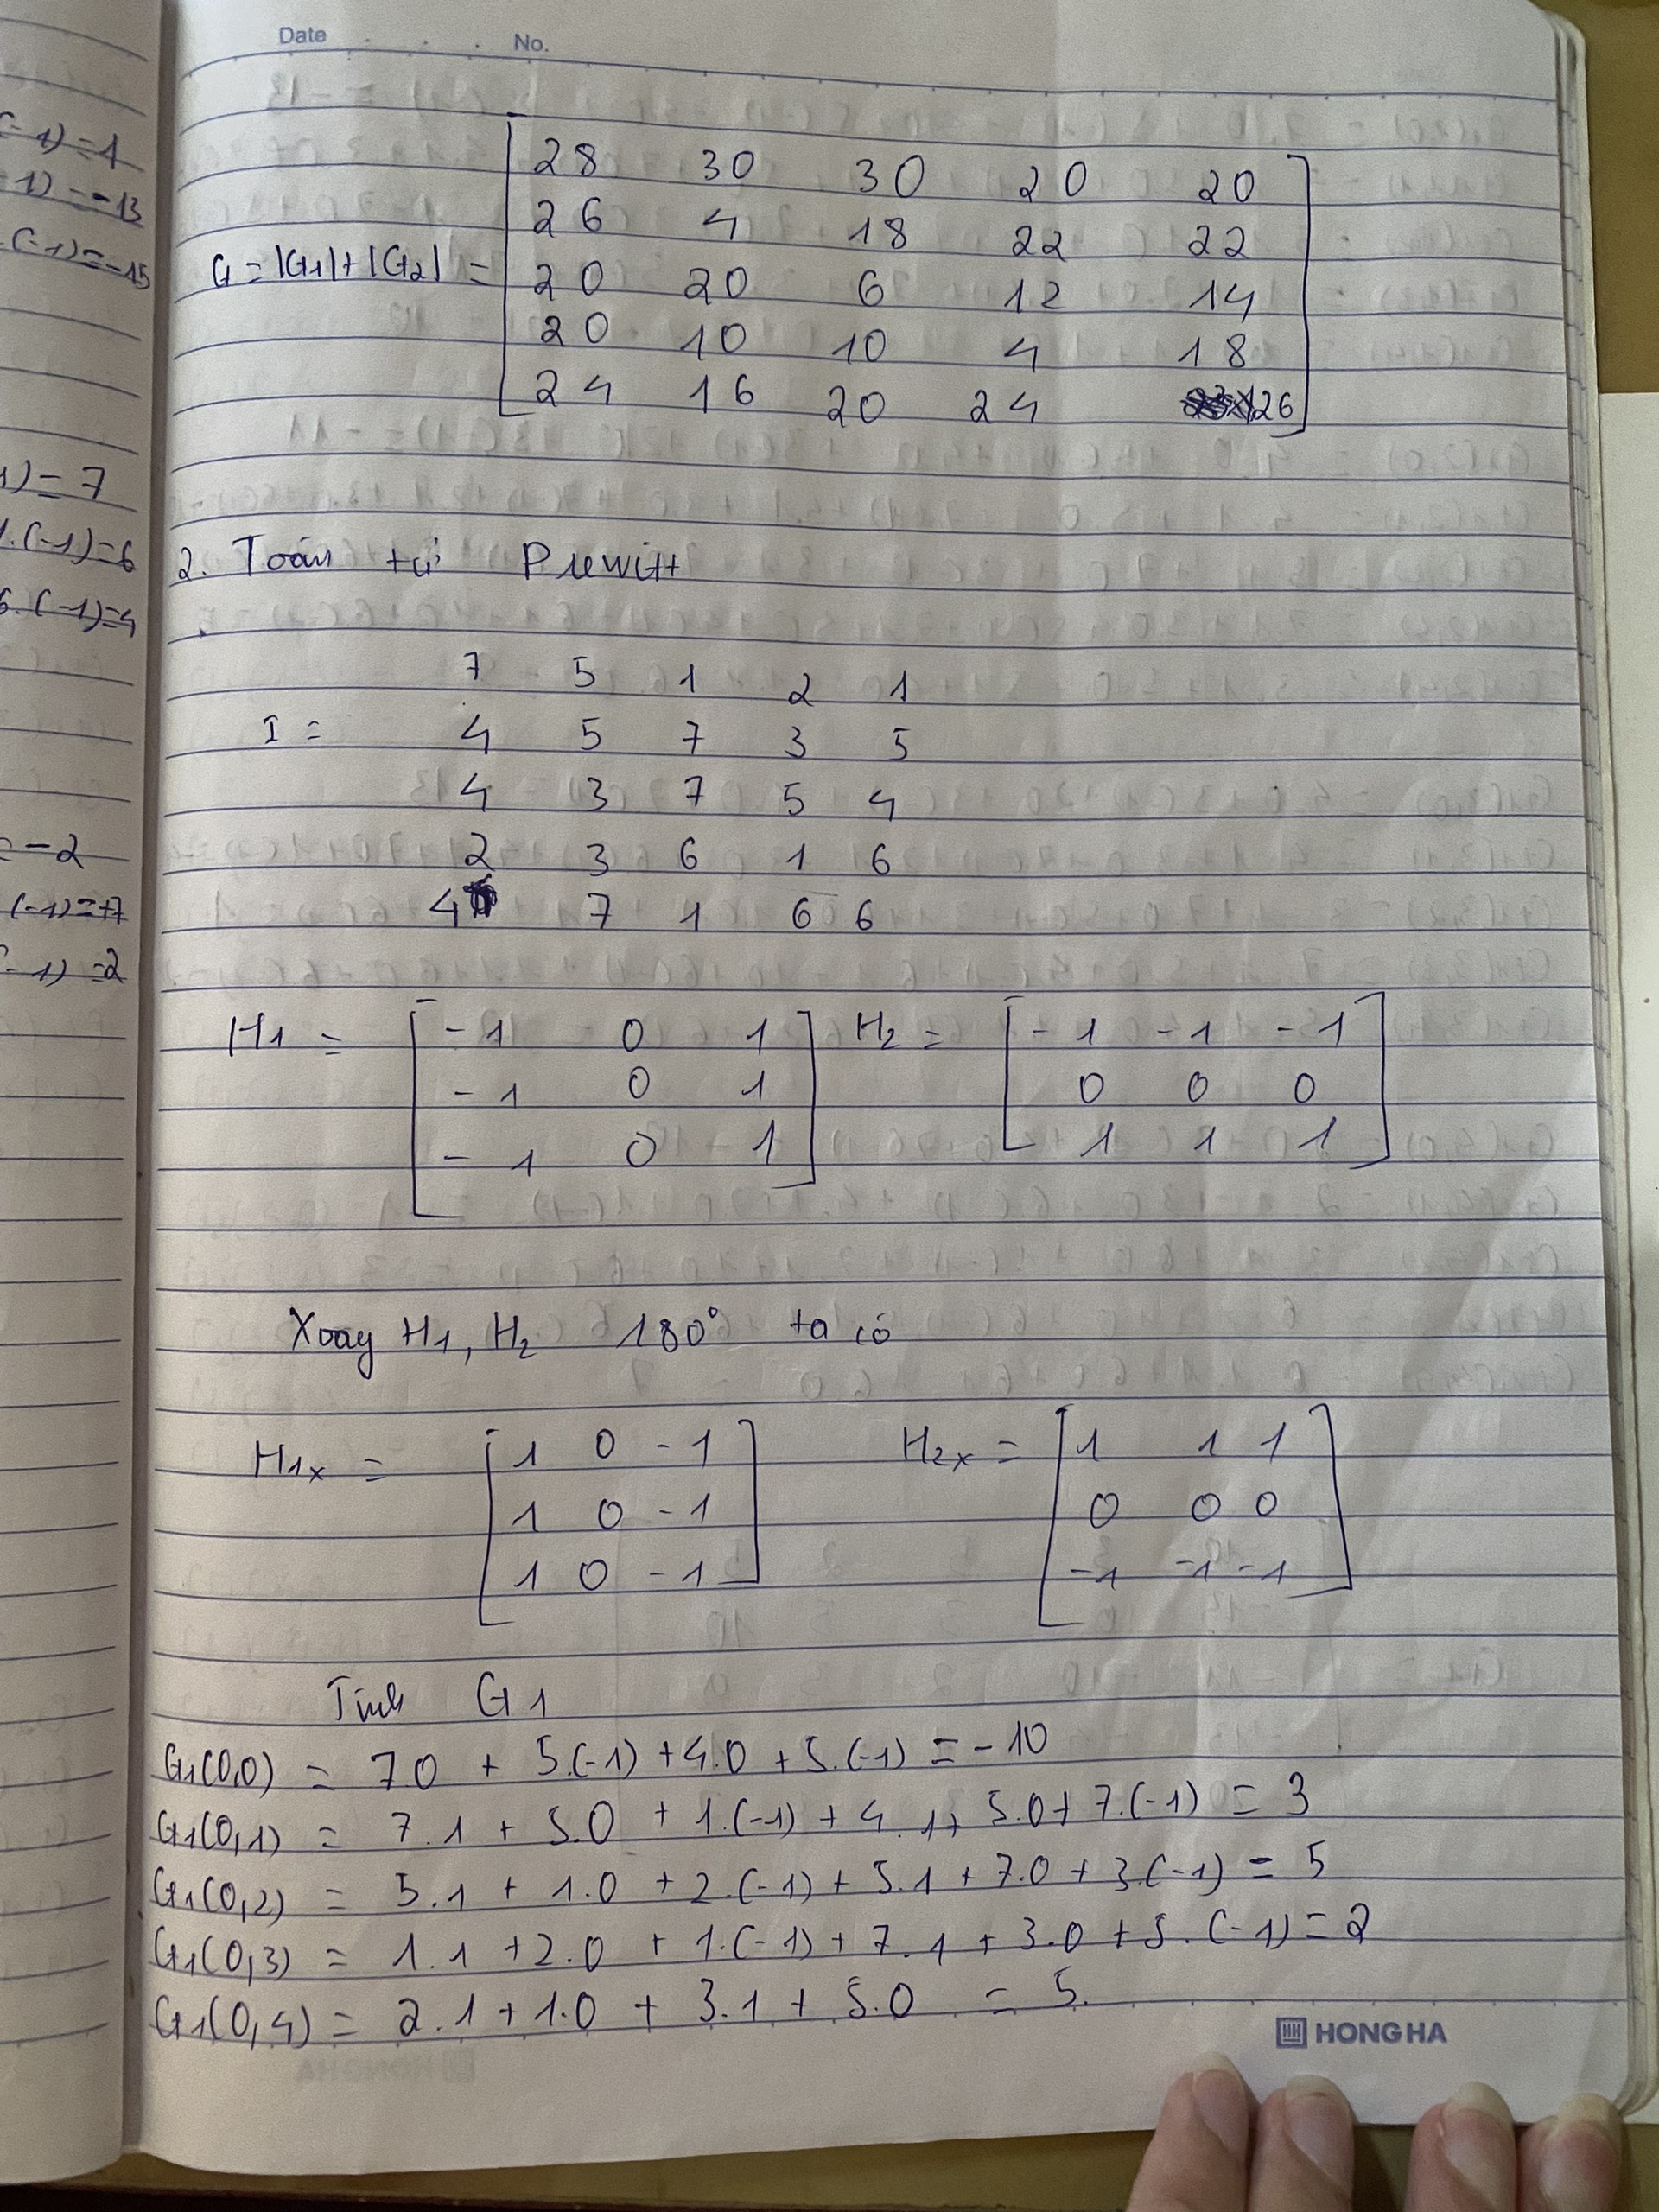 Date . . . No.
(-1)=1
1)=-13
(-1)=-15
1)=7
1.(-1)=6
6.(-1)=4
=-2
(-1)=+7
-1)=2
28 30 30 20 20
26 4 18 22 22
G = |G1|+|G2| = 20 20 6 12 14
20 10 10 4 18
24 16 20 24 26
2. Toán tử Prewitt
7 5 1 2 1
I = 4 5 7 3 5
4 3 7 5 4
2 3 6 1 6
4 7 1 6 6
H1 = -1 0 1 H2 = -1 -1 -1
-1 0 1 0 0 0
-1 0 1 1 1 1
Xoay H1, H2 180° ta có
H1x = 1 0 -1 H2x = 1 1 1
1 0 -1 0 0 0
1 0 -1 -1 -1 -1
Tính G1
G1(0,0) = 7.0 + 5.(-1) + 4.0 + 5.(-1) = -10
G1(0,1) = 7.1 + 5.0 + 1.(-1) + 4.1 + 5.0 + 7.(-1) = 3
G1(0,2) = 5.1 + 1.0 + 2.(-1) + 5.1 + 7.0 + 3.(-1) = 5
G1(0,3) = 1.1 + 2.0 + 1.(-1) + 7.1 + 3.0 + 5.(-1) = 2
G1(0,4) = 2.1 + 1.0 + 3.1 + 5.0 = 5.
HONG HA